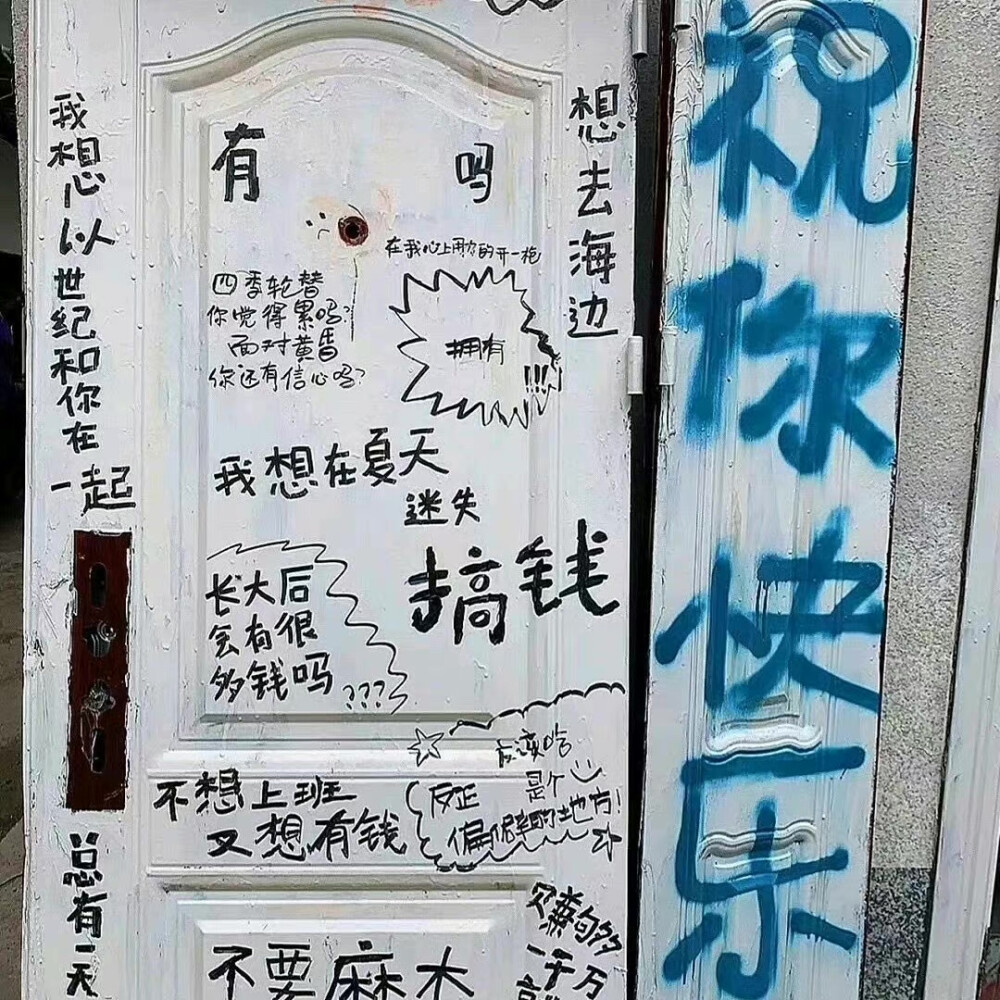 我想以世纪和你在一起
有 吗
想去海边
在我心上用力的开一枪
四季轮替
你觉得累吗?
面对黄昏
你还有信心吗?
拥有
!!!
我想在夏天
迷失
搞钱
长大后
会有很
多钱吗
???
不想上班
又想有钱
反正
是个
偏僻的地方!
总有一天
不要麻木
一千万
祝你快乐